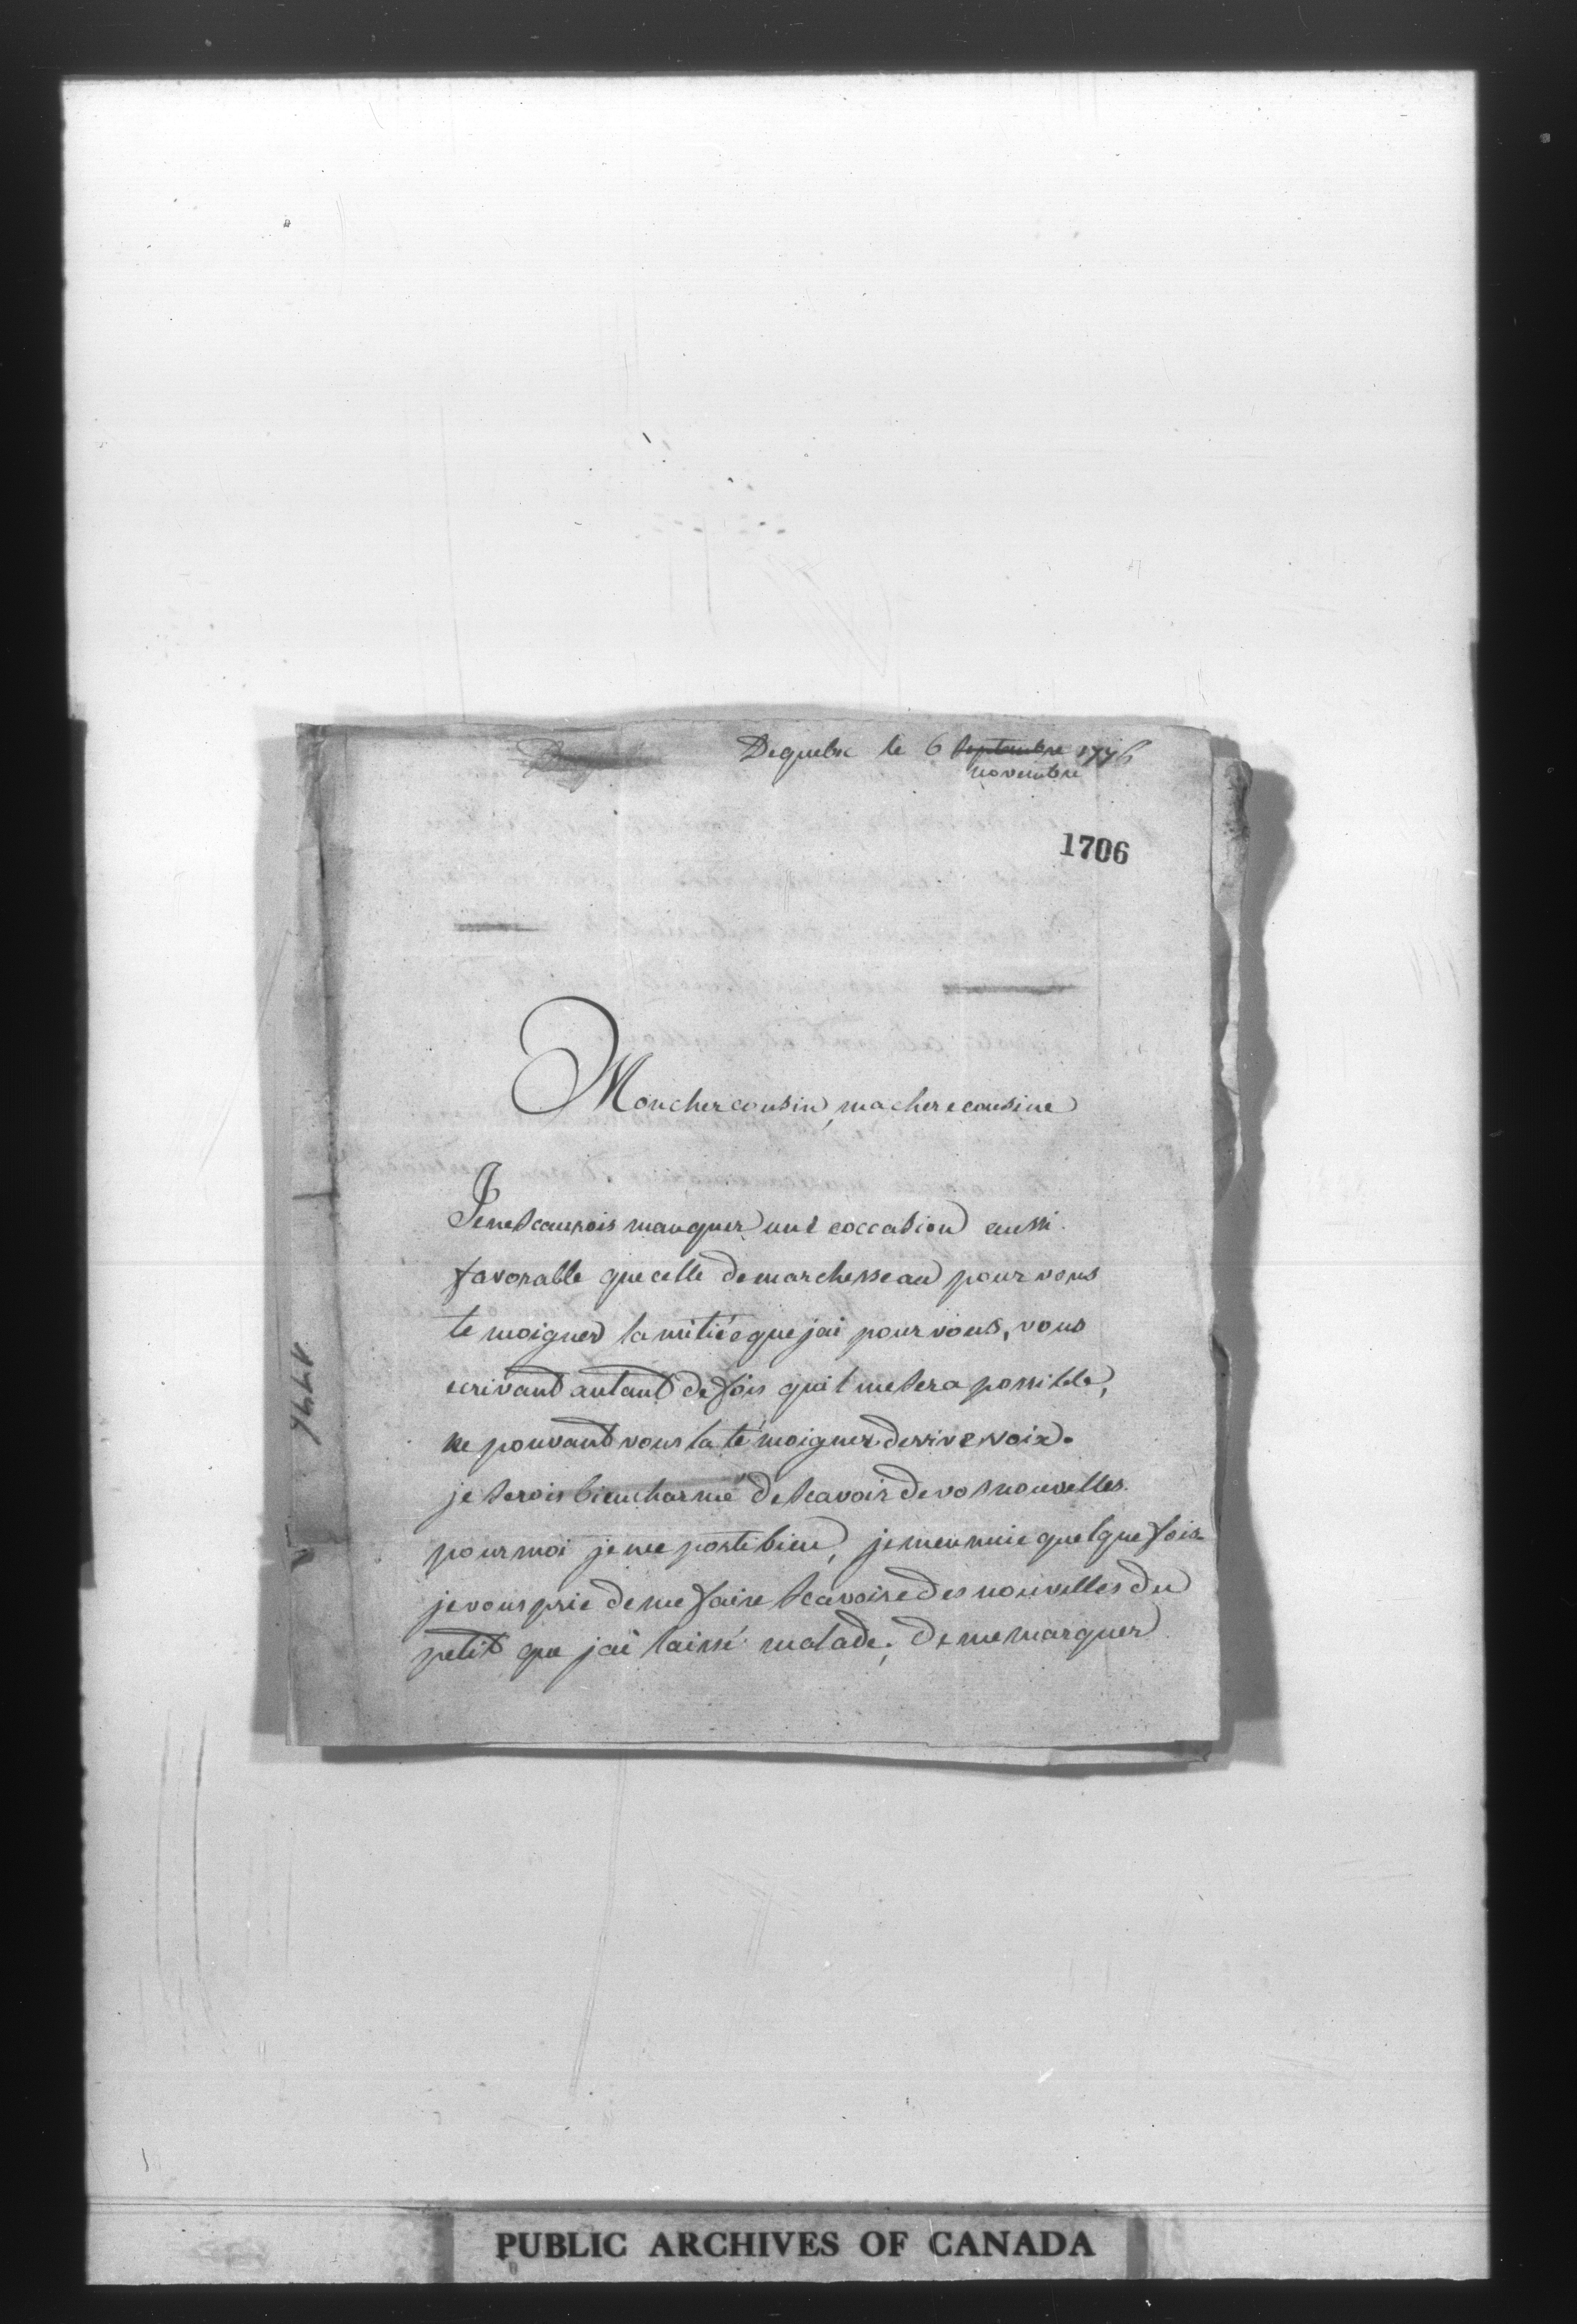 Dequebe le 6 septembre 1776
novembre
1706
Mon cher cousin, ma chere cousine
Je ne scaurois manquer une occasion aussi
favorable que celle de marchesseau pour vous
te moigner lamitiée que jai pour vous, vous
ecrivant autant de fois quil me sera possible,
ne pouvant vous la témoigner de vive voix.
je serois bien charmé de scavoir de vos nouvelles.
pour moi je me porte bien, je mennuie quelque fois
je vous prie de me faire scavoire des nouvelles du
petit que jai laissé malade; de me marquer
1776
PUBLIC ARCHIVES OF CANADA